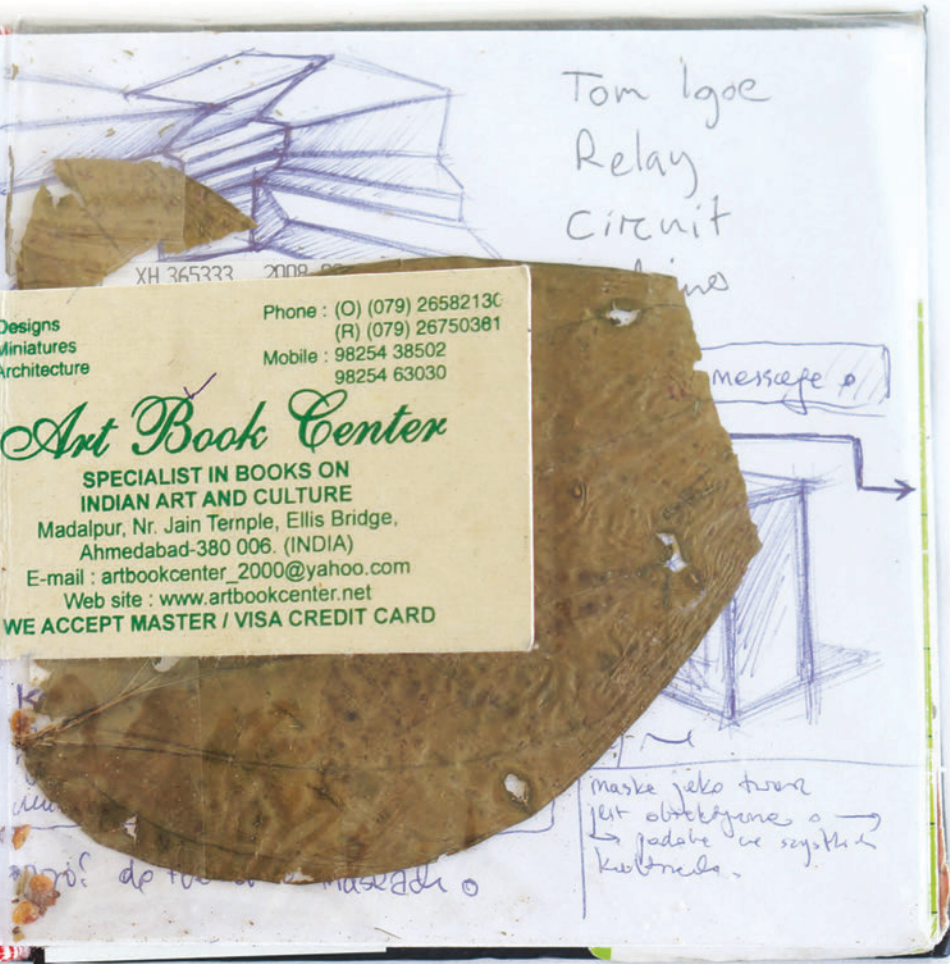 Tom Igoe
Relay
Circuit
XH 365333 2008
Designs
Miniatures
Architecture
Phone : (O) (079) 26582130
(R) (079) 26750381
Mobile : 98254 38502
98254 63030
message
Art Book Center
SPECIALIST IN BOOKS ON
INDIAN ART AND CULTURE
Madalpur, Nr. Jain Temple, Ellis Bridge,
Ahmedabad-380 006. (INDIA)
E-mail : artbookcenter_2000@yahoo.com
Web site : www.artbookcenter.net
WE ACCEPT MASTER / VISA CREDIT CARD
maska jako twarz
jest
podobne we wszystkich
kulturach.
do maskach